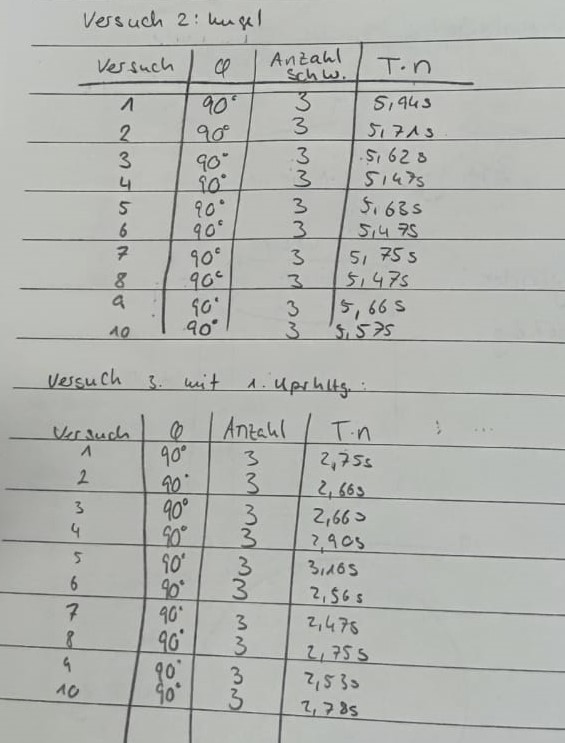 Versuch 2: Kugel
Versuch φ Anzahl Schw. T·n
1 90° 3 5,94s
2 90° 3 5,71s
3 90° 3 5,62s
4 90° 3 5,47s
5 90° 3 5,63s
6 90° 3 5,47s
7 90° 3 5,75s
8 90° 3 5,47s
9 90° 3 5,66s
10 90° 3 5,57s
Versuch 3. mit 1.
Versuch φ Anzahl T·n
1 90° 3 2,75s
2 90° 3 2,66s
3 90° 3 2,66s
4 90° 3 2,90s
5 90° 3 3,16s
6 90° 3 2,56s
7 90° 3 2,47s
8 90° 3 2,75s
9 90° 3 2,53s
10 90° 3 2,78s